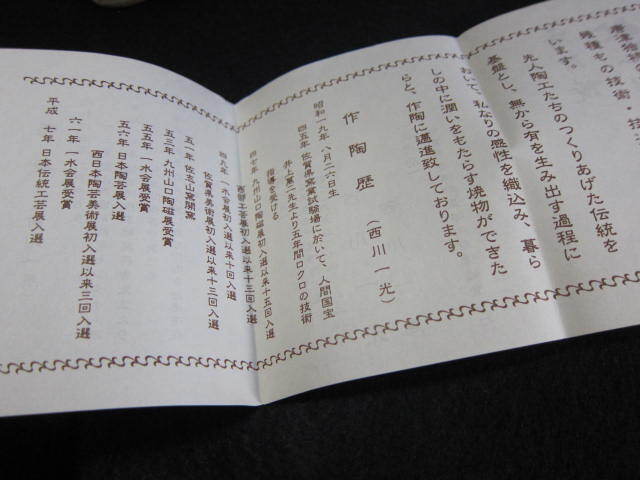 唐津焼
幾種もの技術、技
います。
先人陶工たちのつくりあげた伝統を
基盤とし、無から有を生み出す過程に
おいて、私なりの感性を織込み、暮ら
しの中に潤いをもたらす焼物ができた
らと、作陶に邁進致しております。
作陶歴 (西川一光)
昭和一九年 八月二六日生
四五年 佐賀県窯業試験場に於いて、人間国宝
井上萬二先生より五年間ロクロの技術
指導を受ける
四七年 九州山口陶磁展初入選以来十五回入選
西部工芸展初入選以来十三回入選
佐賀県美術展初入選以来十三回入選
四九年 一水会展初入選以来十回入選
五一年 佐志山窯開窯
五三年 九州山口陶磁展受賞
五五年 一水会展受賞
五六年 日本陶芸展入選
西日本陶芸美術展初入選以来十三回入選
六一年 一水会展受賞
平成 七年 日本伝統工芸展入選